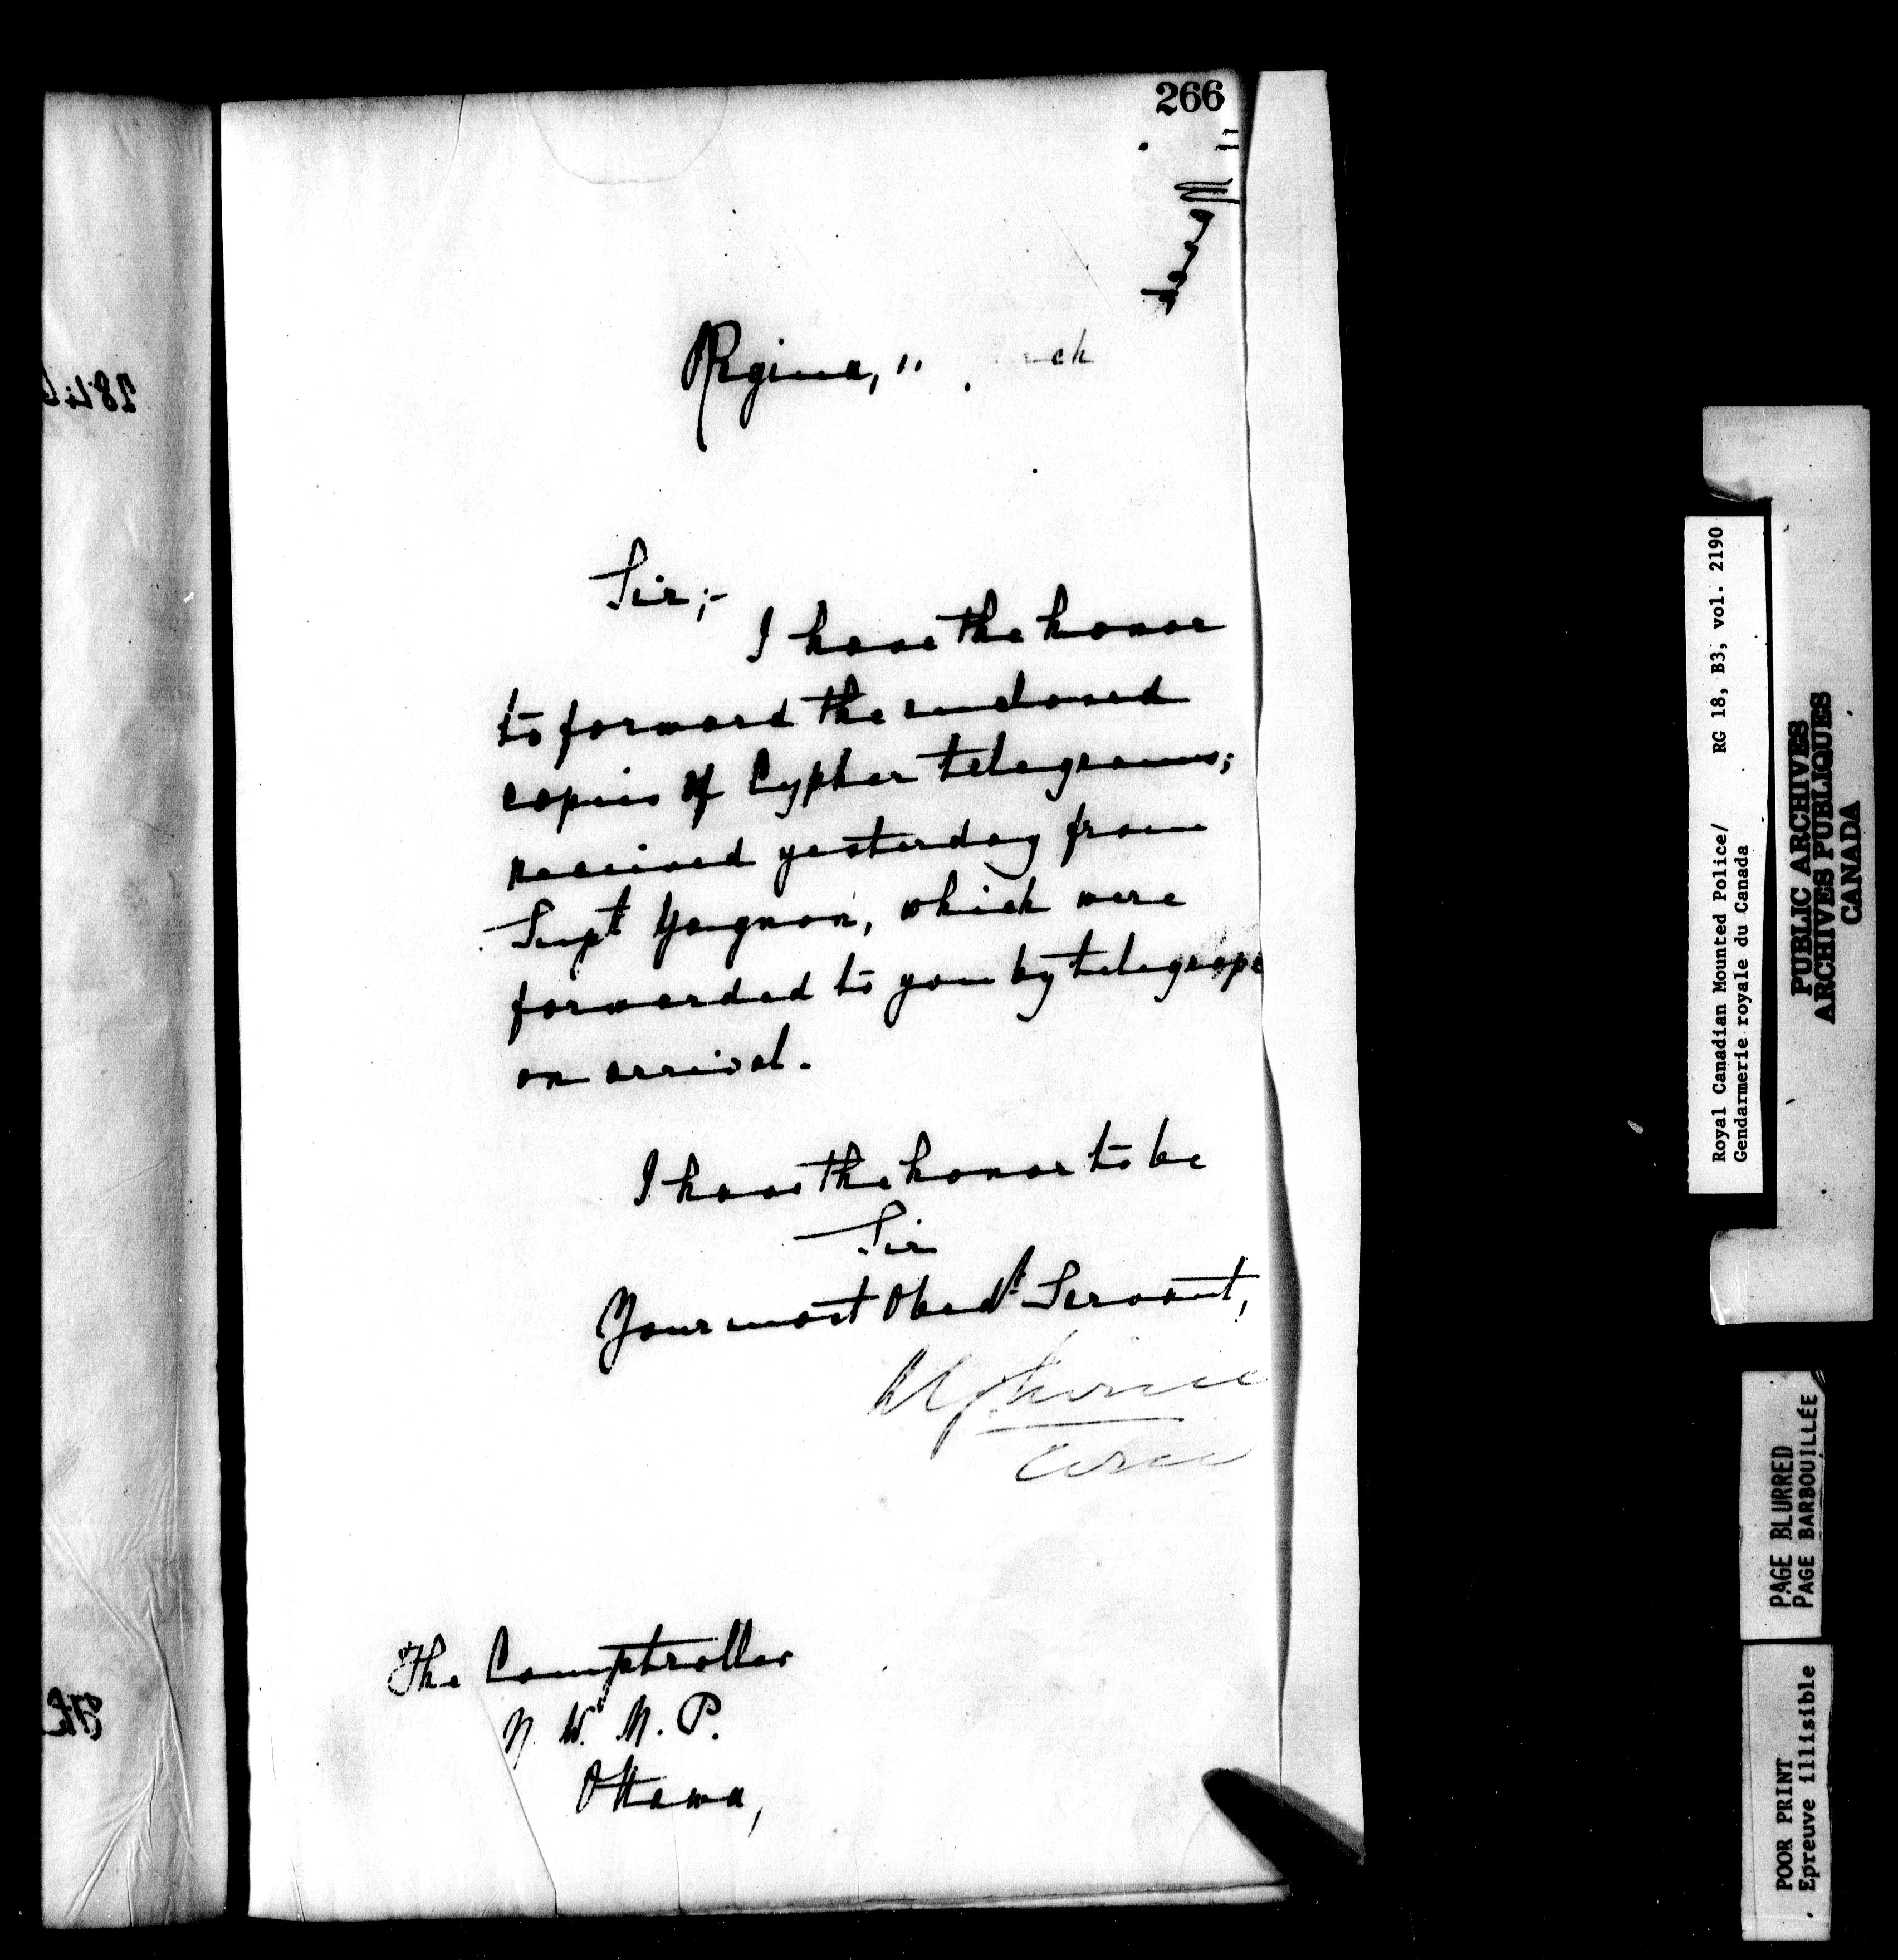 266
Regina, 11
Sir;-
I have the honor
to forward the enclosed
copies of Cypher telegrams;
received yesterday from
Supt Gagnon, which were
forwarded to you by telegraph
on arrival.
I have the honor to be
Sir
Your most Obedt Servant,
The Comptroller
N. W. M. P.
Ottawa,
Royal Canadian Mounted Police/ RG 18, B3, vol. 2190
Gendarmerie royale du Canada
PUBLIC ARCHIVES
ARCHIVES PUBLIQUES
CANADA
PAGE BLURRED
PAGE BARBOUILLÉE
POOR PRINT
Epreuve illisible